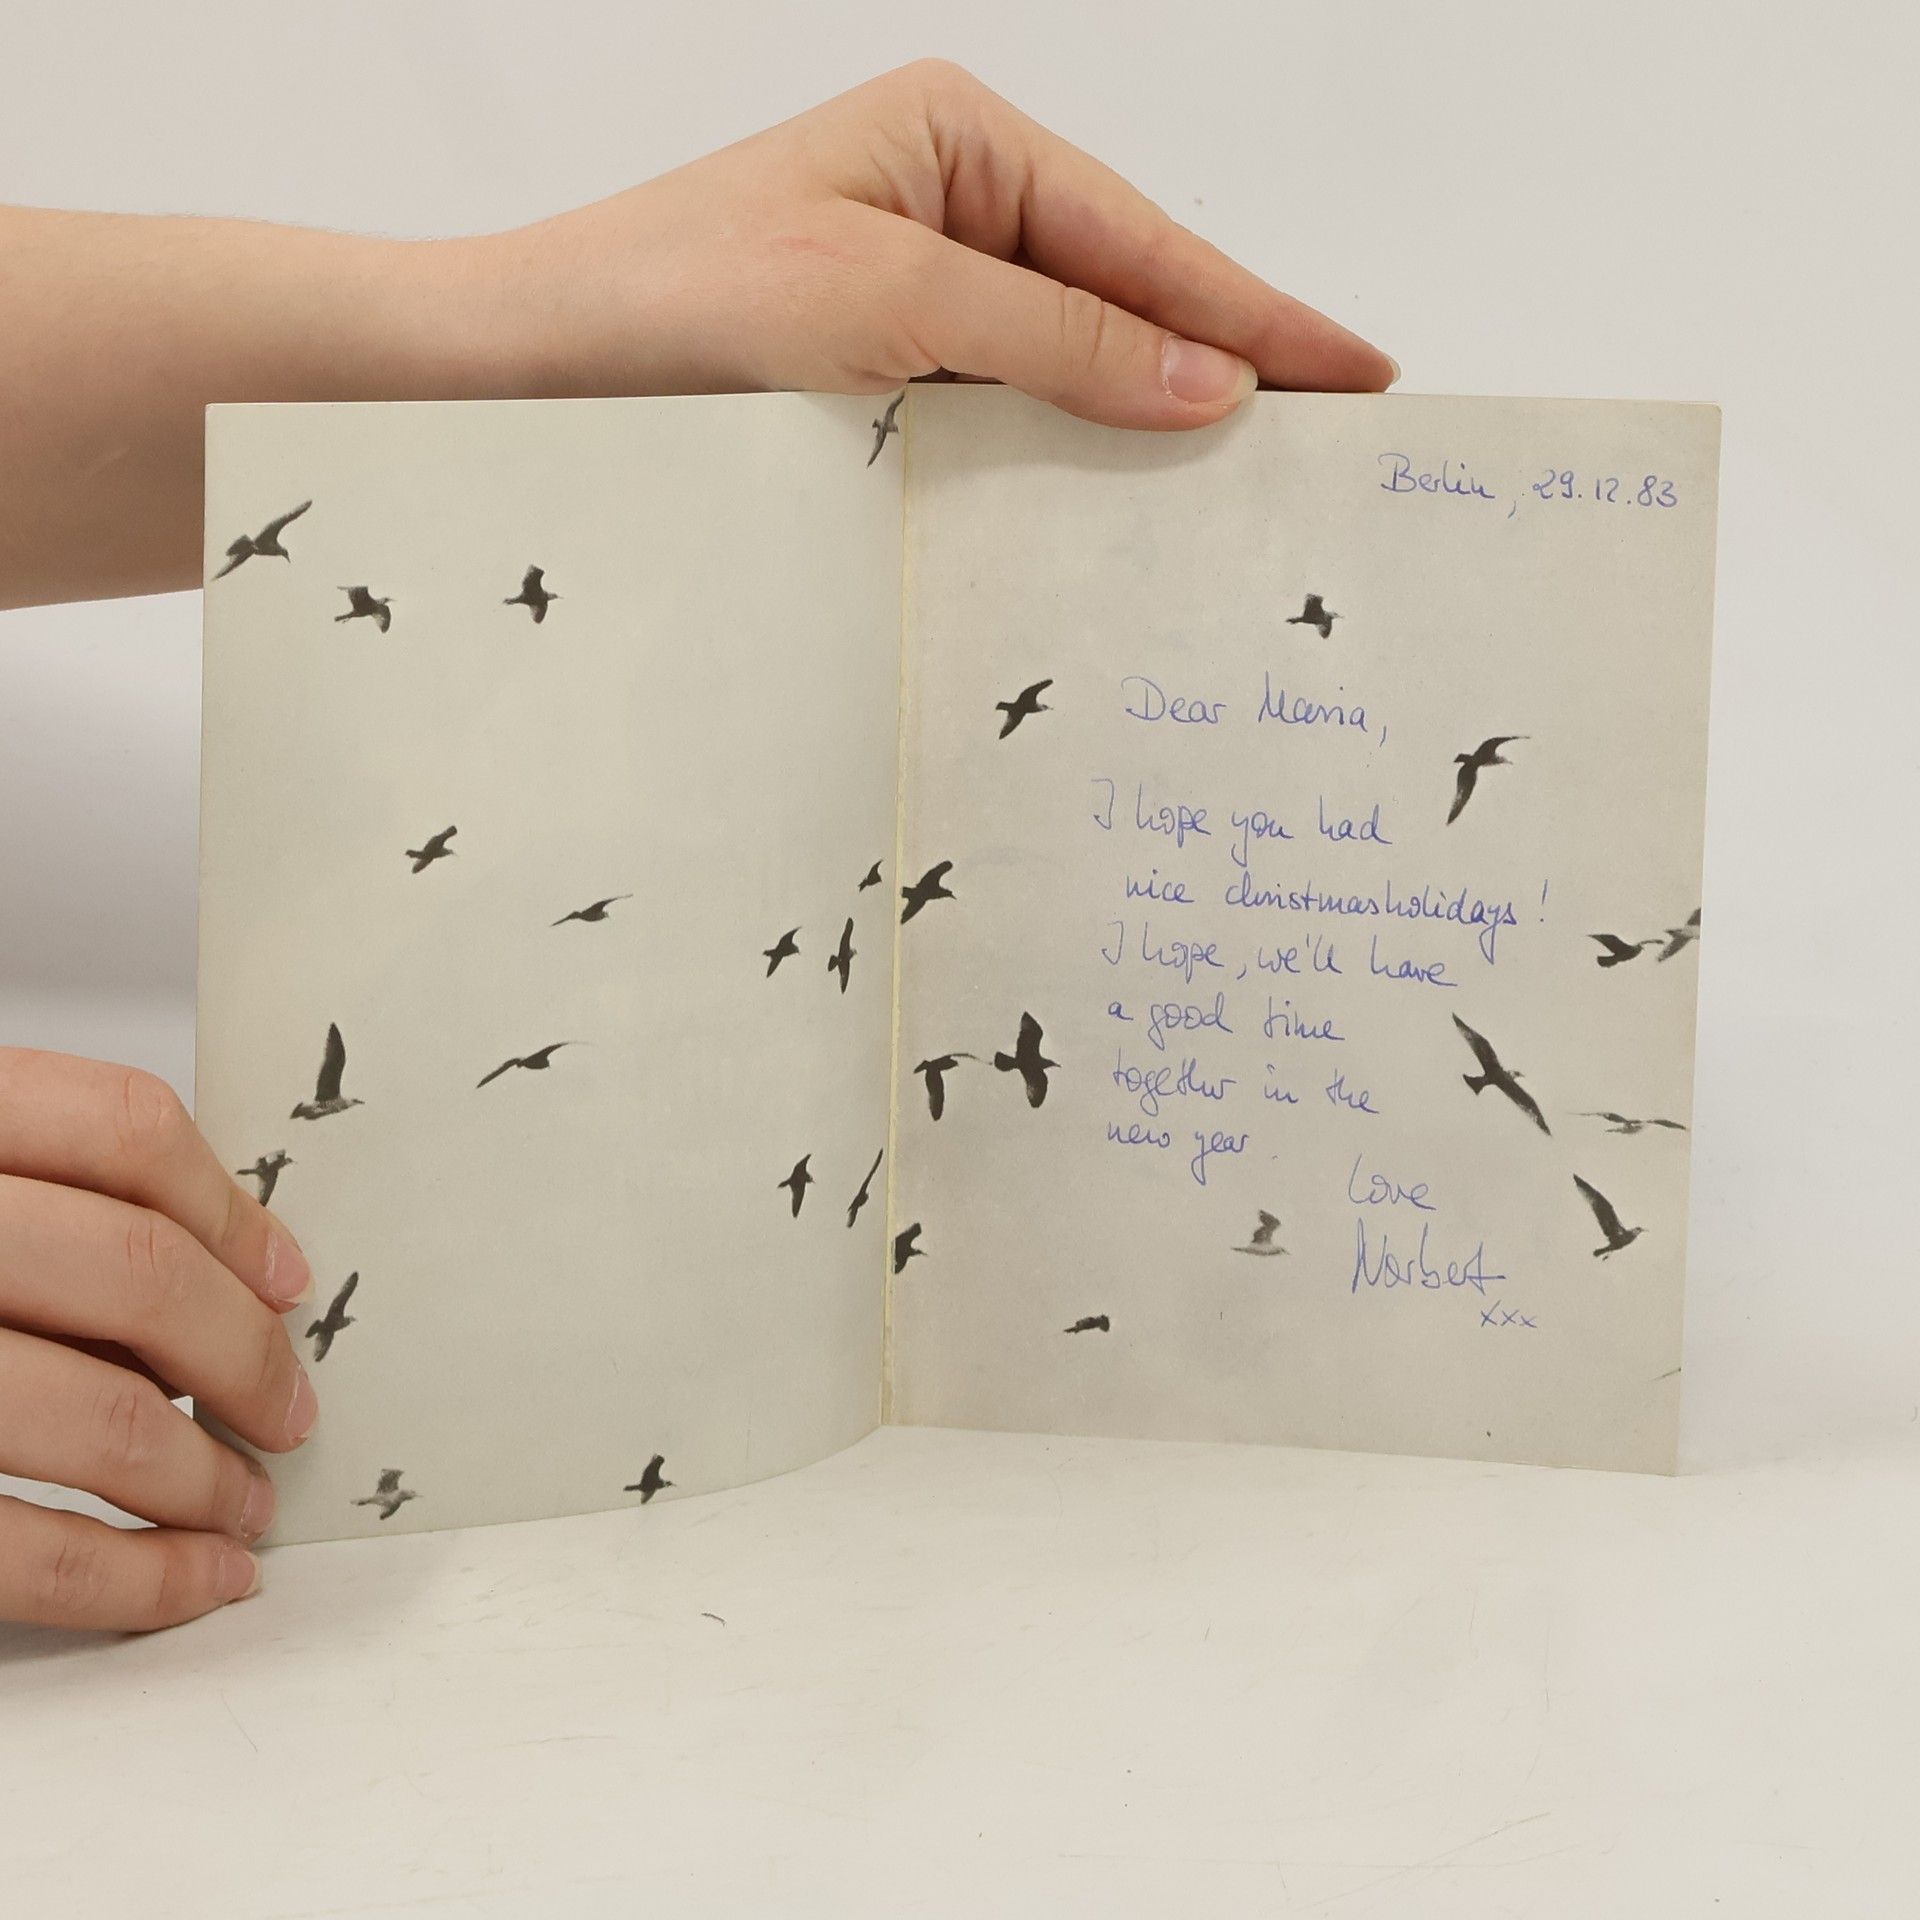 Berlin, 29.12.83
Dear Maria,
I hope you had
nice christmasholidays!
I hope, we'll have
a good time
together in the
new year.
Love
Norbert
xxx